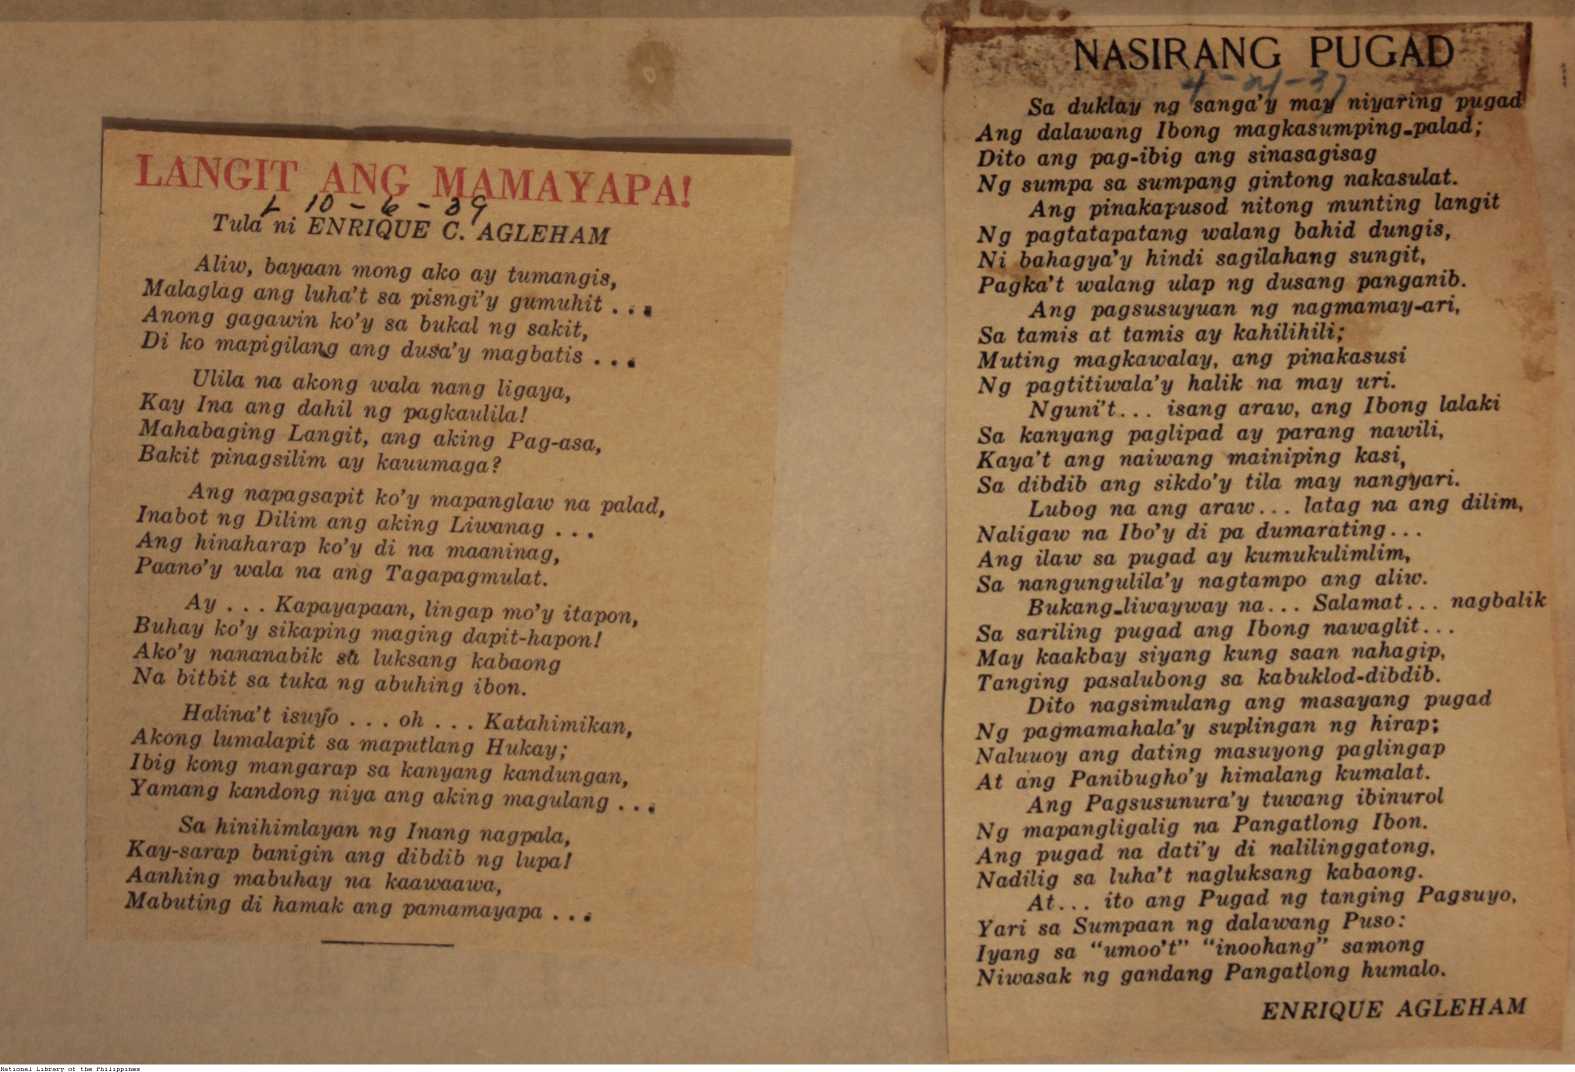 LANGIT ANG MAMAYAPA!
L 10-6-39
Tula ni ENRIQUE C. AGLEHAM
Aliw, bayaan mong ako ay tumangis,
Malaglag ang luha't sa pisngi'y gumuhit . . .
Anong gagawin ko'y sa bukal ng sakit,
Di ko mapigilang ang dusa'y magbatis . . .
Ulila na akong wala nang ligaya,
Kay Ina ang dahil ng pagkaulila!
Mahabaging Langit, ang aking Pag-asa,
Bakit pinagsilim ay kauumaga?
Ang napagsapit ko'y mapanglaw na palad,
Inabot ng Dilim ang aking Liwanag . . .
Ang hinaharap ko'y di na maaninag,
Paano'y wala na ang Tagapagmulat.
Ay . . . Kapayapaan, lingap mo'y itapon,
Buhay ko'y sikaping maging dapit-hapon!
Ako'y nananabik sa luksang kabaong
Na bitbit sa tuka ng abuhing ibon.
Halina't isuyo . . . oh . . . Katahimikan,
Akong lumalapit sa maputlang Hukay;
Ibig kong mangarap sa kanyang kandungan,
Yamang kandong niya ang aking magulang . . .
Sa hinihimlayan ng Inang nagpala,
Kay-sarap banigin ang dibdib ng lupa!
Aanhing mabuhay na kaawaawa,
Mabuting di hamak ang pamamayapa . . .
NASIRANG PUGAD
4-21-37
Sa duklay ng sanga'y may niyaring pugad
Ang dalawang Ibong magkasumping-palad;
Dito ang pag-ibig ang sinasagisag
Ng sumpa sa sumpang gintong nakasulat.
Ang pinakapusod nitong munting langit
Ng pagtatapatang walang bahid dungis,
Ni bahagya'y hindi sagilahang sungit,
Pagka't walang ulap ng dusang panganib.
Ang pagsusuyuan ng nagmamay-ari,
Sa tamis at tamis ay kahilihili;
Muting magkawalay, ang pinakasusi
Ng pagtitiwala'y halik na may uri.
Nguni't... isang araw, ang Ibong lalaki
Sa kanyang paglipad ay parang nawili,
Kaya't ang naiwang mainiping kasi,
Sa dibdib ang sikdo'y tila may nangyari.
Lubog na ang araw... latag na ang dilim,
Naligaw na Ibo'y di pa dumarating...
Ang ilaw sa pugad ay kumukulimlim,
Sa nangungulila'y nagtampo ang aliw.
Bukang-liwayway na... Salamat... nagbalik
Sa sariling pugad ang Ibong nawaglit...
May kaakbay siyang kung saan nahagip,
Tanging pasalubong sa kabuklod-dibdib.
Dito nagsimulang ang masayang pugad
Ng pagmamahala'y suplingan ng hirap;
Naluuoy ang dating masuyong paglingap
At ang Panibugho'y himalang kumalat.
Ang Pagsusunura'y tuwang ibinurol
Ng mapangligalig na Pangatlong Ibon.
Ang pugad na dati'y di nalilinggatong,
Nadilig sa luha't nagluksang kabaong.
At... ito ang Pugad ng tanging Pagsuyo,
Yari sa Sumpaan ng dalawang Puso:
Iyang sa "umoo't" "inoohang" samong
Niwasak ng gandang Pangatlong humalo.
ENRIQUE AGLEHAM
National Library of the Philippines